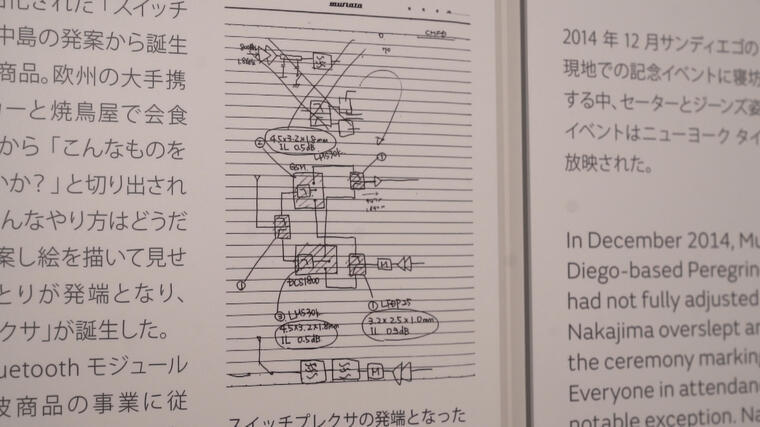 化された「スイッチ
中島の発案から誕生
商品。欧州の大手携
ーと焼鳥屋で会食
から「こんなものを
いか？」と切り出され
んなやり方はどうだ
案し絵を描いて見せ
とりが発端となり、
クサ」が誕生した。
uetooth モジュール
波商品の事業に従
muRata
0
70
4.5×3.2×1.8mm
IL 0.5dB
LMS30k
②
①
GSM
DCS1800
①
③ LMS30k
4.5×3.2×1.8mm
IL 0.5dB
① LFDP25
3.2×2.5×1.0mm
IL 0.3dB
スイッチプレクサの発端となった
2014 年 12 月サンディエゴの
現地での記念イベントに寝坊
する中、セーターとジーンズ姿
イベントはニューヨーク タイ
放映された。
In December 2014, Mu
Diego-based Peregrin
had not fully adjusted
Nakajima overslept an
the ceremony marking
Everyone in attendan
notable exception. Na